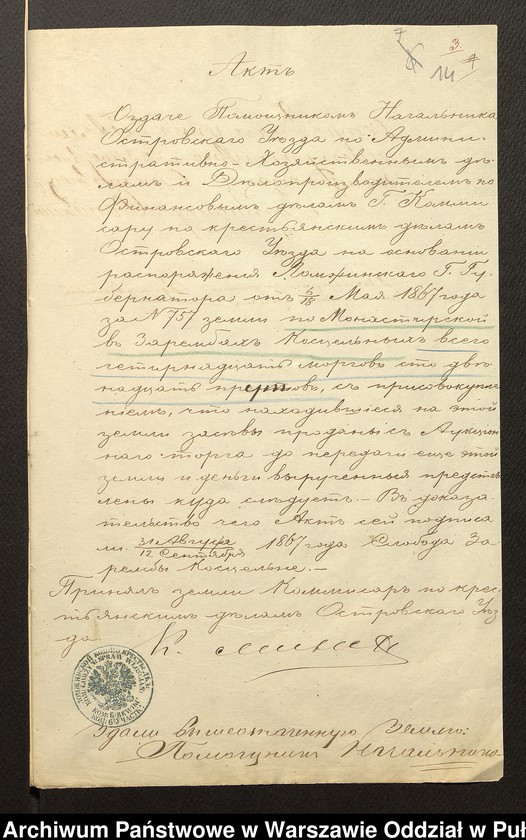 3.
7
14
Актъ
О здаче Помощникомъ Начальника
Островского Уѣзда по Админи-
стративно-Хозяйственнымъ дѣ-
ламъ и Дѣлопроизводителемъ по
Финансовымъ дѣламъ Г. Комми
сару по крестьянскимъ дѣламъ
Островского Уѣзда на основании
распоряжения Г. Ломжинскаго Г. Гу-
бернатора отъ 6/18 Мая 1867 года
за № 757 земли по Монастирской
въ Зарембахъ Косцельныхъ всего
четирнадцать моргово сто двѣ-
надцать прентовъ, съ присовокупле
ніемъ, что находившіеся на этой
земли засѣвы проданы съ Аукціон
наго торга до передачи еще этой
земли и деньги вырученныя представ
лены куда слѣдуетъ. – Въ доказа
тельство чего Актъ сей подписа
ли 31 Августа/12 Сентября 1867 года Слобода За
ремби Косцельне. –
Принялъ земли Коммисаръ по крес
тьянскимъ дѣламъ Островского Уѣз
да
Здали вышеозначенную Землю:
Помощникъ Начальника
Archiwum Państwowe w Warszawie Oddział w Puł